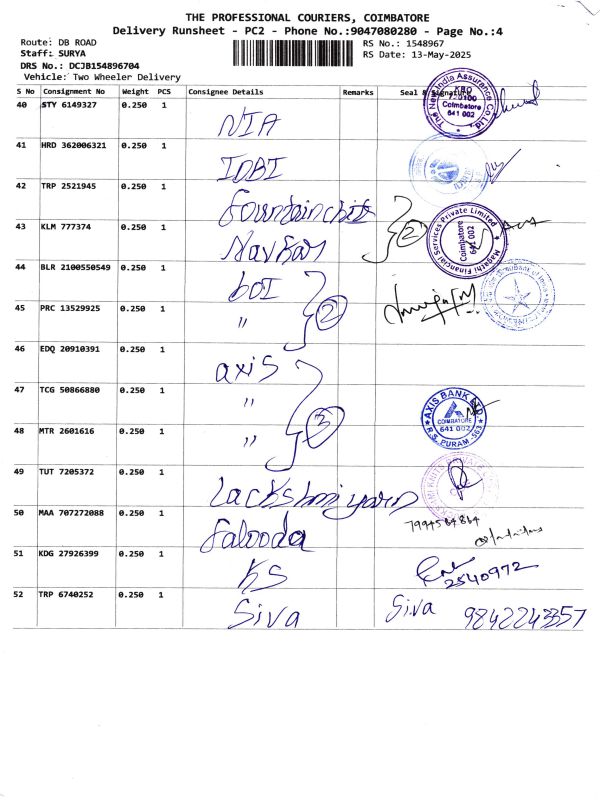 THE PROFESSIONAL COURIERS, COIMBATORE
Delivery Runsheet - PC2 - Phone No.:9047080280 - Page No.:4
Route: DB ROAD RS No.: 1548967
Staff: SURYA RS Date: 13-May-2025
DRS No.: DCJB154896704
Vehicle: Two Wheeler Delivery
S No Consignment No Weight PCS Consignee Details Remarks Seal & Signature
40 STY 6149327 0.250 1 NIA
The New India Assurance Co Ltd
Coimbatore
641 002
41 HRD 362006321 0.250 1 IDBI
42 TRP 2521945 0.250 1 fountainchits
43 KLM 777374 0.250 1 Navkar 2
Magathi Financial Services Private Limited
Coimbatore
641 002
44 BLR 2100550549 0.250 1 boI
45 PRC 13529925 0.250 1 " 2
46 EDQ 20910391 0.250 1 axis
47 TCG 50866880 0.250 1 "
AXIS BANK LTD.
COIMBATORE
641 002
R.S. PURAM
48 MTR 2601616 0.250 1 " 3
49 TUT 7205372 0.250 1 Lackshmiyarn
50 MAA 707272088 0.250 1 falooda
51 KDG 27926399 0.250 1 KS 2540972
52 TRP 6740252 0.250 1 Siva Siva 9842243357